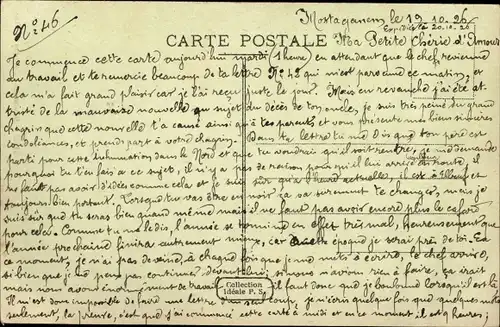 N° 46
Mostaganem le 19.10.26
Expédiée le 20.10.26
CARTE POSTALE
Ma Petite Chérie d'Amour
Je commence cette carte aujourd'hui mardi 1 heure, en attendant que le chef revienne
au travail et te remercie beaucoup de ta lettre N° 42 qui m'est parvenue ce matin, et
cela m'a fait grand plaisir car je l'ai reçue juste le jour. Mais en revanche j'ai été at-
tristé de la mauvaise nouvelle au sujet du décès de ton oncle, je suis très peiné du grand
chagrin que cette nouvelle t'a causé ainsi qu'à tes parents et vous présente mes bien sincères
condoléances, et prends part à votre chagrin. Dans ta lettre tu me dis que ton père est
parti pour cette inhumation dans le Nord et que tu voudrais qu'il soit rentré, je me demande
pourquoi tu t'en fais à ce sujet, il n'y a pas de raison pour qu'il lui arrive en route, il
ne faut pas avoir d'idées comme cela et je suis sûr qu'à l'heure actuelle, il est à
toujours bien portant. Lorsque tu vas être en noir ça va sûrement te changer, mais je
suis sûr que tu seras bien quand même mais il ne faut pas avoir encore plus le cafard
pour cela. Comme tu me le dis, l'année se termine en effet très mal, heureusement que
l'année prochaine finira autrement mieux, car à cette époque je serai près de toi. En
ce moment, je n'ai pas de veine, à chaque fois que je me mets à écrire, le chef arrive,
si bien que je ne peux pas continuer devant lui, si nous n'avions rien à faire, ça irait
mais nous avons il faut donc que je
Il m'est donc impossible de faire une lettre d'un seul coup, je n'écris quelque fois que quelques mots
seulement, la preuve, c'est que j'ai commencé cette carte à midi et en ce moment il est 9 heures;
Collection
Idéale P.S.